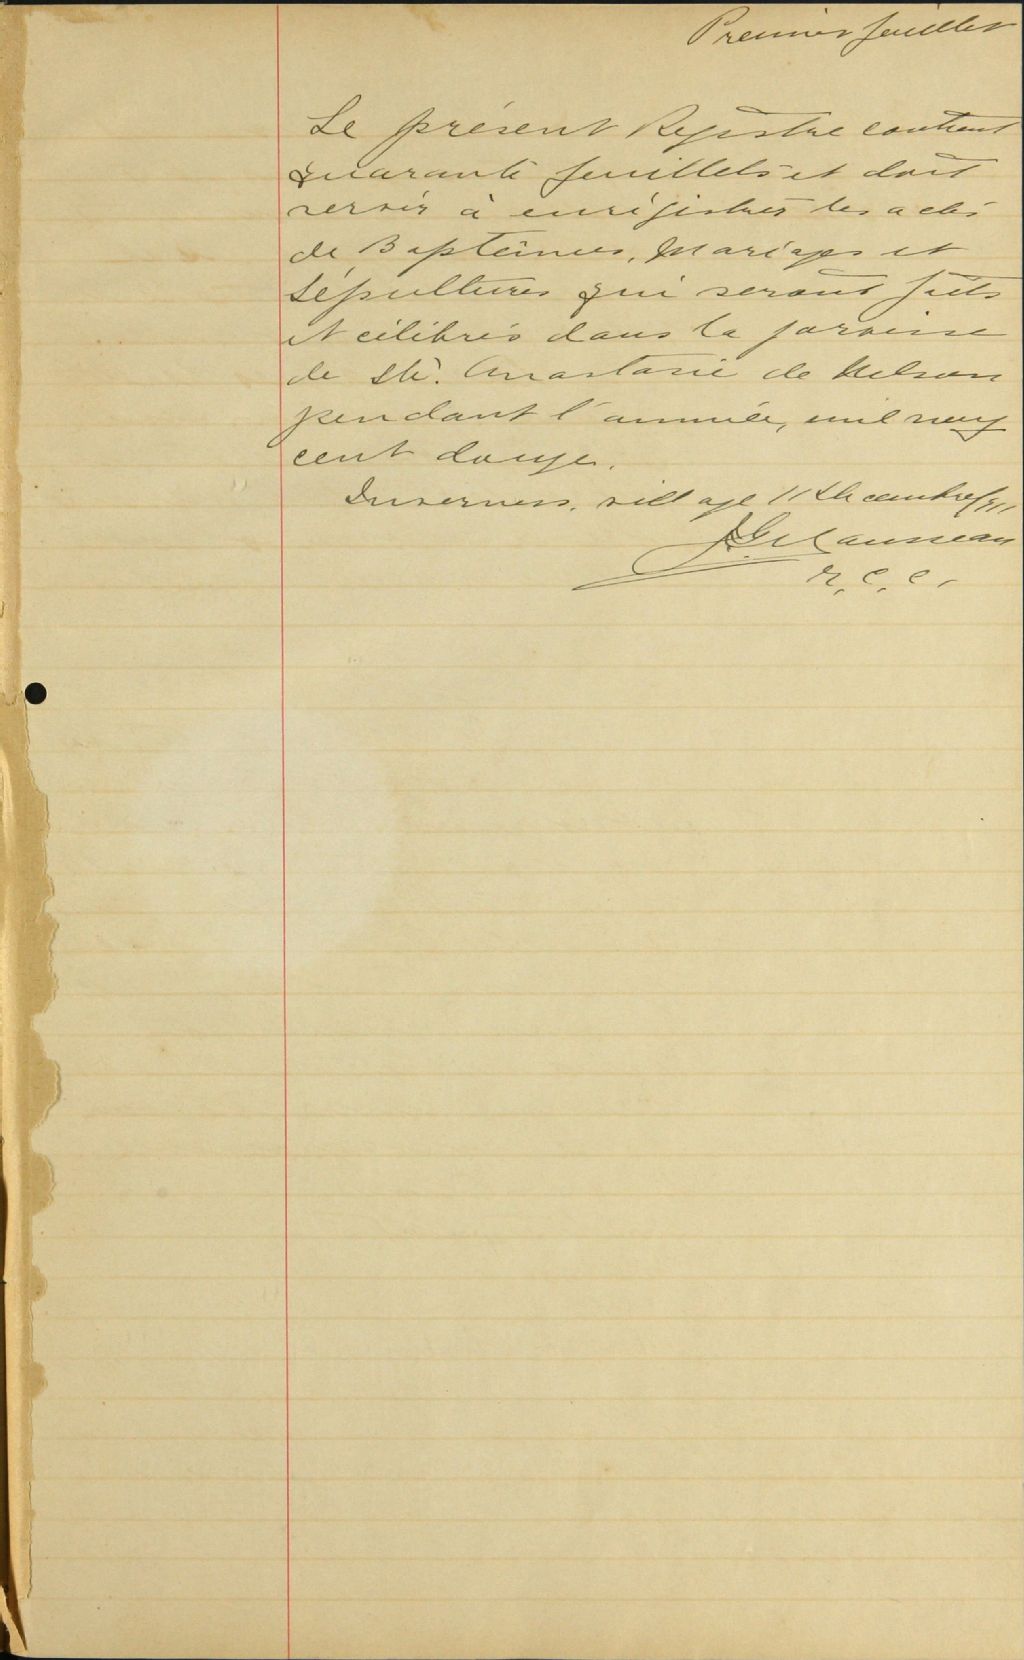 Premier feuillet
Le présent Registre contient
quarante feuillets et doit
servir à enrégistrer les actes
de Baptêmes, Mariages et
Sépultures qui seront faits
et célébrés dans la paroisse
de Ste. Anastasie de Nelson
pendant l'année, mil neuf
cent douze.
Inverness, village 11 Décembre/911
Rousseau
r. c. c.